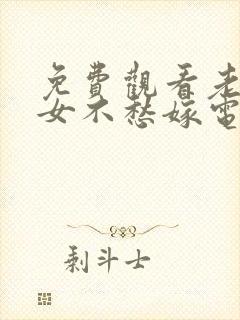 免費觀看老
女不愁嫁電
剩斗士